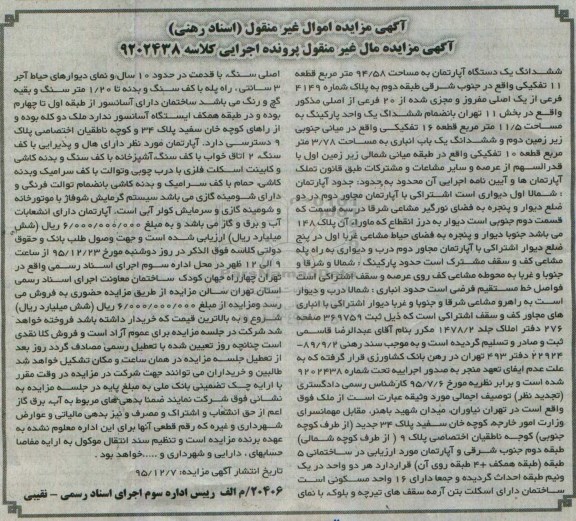 آگهی مزایده اموال غیر منقول (اسناد رهنی)
آگهی مزایده مال غیر منقول پرونده اجرایی کلاسه ۹۲۰۲۴۳۸
ششدانگ یک دستگاه آپارتمان به مساحت ۹۴/۵۸ متر مربع قطعه
۱۱ تفکیکی واقع در جنوب شرقی طبقه دوم به پلاک شماره ۴۱۴۹
فرعی از یک اصلی مفروز و مجزی شده از ۲۰ فرعی از اصلی مذکور
واقع در بخش ۱۱ تهران بانضمام ششدانگ یک واحد پارکینگ به
مساحت ۱۱/۵ متر مربع قطعه ۱۶ تفکیکی واقع در میانی جنوبی
زیر زمین دوم و ششدانگ یک باب انباری به مساحت ۳/۷۸ متر
مربع قطعه ۱۰ تفکیکی واقع در طبقه میانی شمالی زیر زمین اول با
قدرالسهم از عرصه و سایر مشاعات و مشترکات طبق قانون تملک
آپارتمان ها و آیین نامه اجرایی آن محدود به حدود: حدود آپارتمان
: شمالا اول دیواری است اشتراکی با آپارتمان مجاور دوم در دو
ضلع دیوار و پنجره به فضای نورگیر مشاعی شرقا در سه قسمت که
قسمت دوم جنوبی است دیوار به درز انقطاع که ماوراء آن پلاک ۱۴۸
می باشد جنوبا دیوار و پنجره به فضای حیاط مشاعی غربا اول در پنج
ضلع دیوار اشتراکی با آپارتمان مجاور دوم درب و دیواری به راه پله
مشاعی کف و سقف مشترک است حدود پارکینگ : شمالا و شرقا و
جنوبا و غربا به محوطه مشاعی کف روی عرصه و سقف اشتراکی است
فواصل خط مستقیم فرضی است حدود انباری : شمالا درب و دیوار
است به راهرو مشاعی شرقا و جنوبا و غربا دیوار اشتراکی با انباری
های مجاور کف و سقف اشتراکی است که ذیل ثبت ۳۶۹۷۵۹ صفحه
۲۷۶ دفتر املاک جلد ۱۴۷۸/۲ مکرر بنام آقای عبدالرضا قاسمی
ثبت و صادر و تسلیم گردیده است و به موجب سند رهنی ۸۹/۹/۲-
۲۲۹۲۴ دفتر ۴۹۲ تهران در رهن بانک کشاورزی قرار گرفته که به
علت عدم ایفای تعهد منجر به صدور اجراییه تحت شماره ۹۲۰۲۴۳۸
شده است و برابر نظریه مورخ ۹۵/۷/۶ کارشناس رسمی دادگستری
(تجدید نظر) توصیف اجمالی مورد وثیقه عبارت است از ملک فوق
واقع است در تهران نیاوران، میدان شهید باهنر، مقابل مهمانسرای
وزارت امور خارجه کوچه خان سفید پلاک ۳۴ جدید (از طرف کوچه
جنوبی) کوچه ناطقیان اختصاصی پلاک ۹ ( از طرف کوچه شمالی)
طبقه دوم جنوب شرقی و آپارتمان مورد ارزیابی در ساختمانی ۵
طبقه (طبقه همکف +۴ طبقه روی آن) قراردارد هر دو واحد در یک
ونیم طبقه احداث گردیده و جمعا دارای ۱۶ واحد مسکونی است
ساختمان دارای اسکلت بتن آرمه سقف های تیرچه و بلوکه با نمای
اصلی سنگ، با قدمت در حدود ۱۰ سال و نمای دیوارهای حیاط آجر
۳ سانتی ، راه پله با کف سنگ و بدنه تا ۱/۲۰ متر سنگ و بقیه
گچ و رنگ می باشد ساختمان دارای آسانسور از طبقه اول تا چهارم
بوده و در طبقه همکف ایستگاه آسانسور ندارد ملک دو کله بوده و
از راهای کوچه خان سفید پلاک ۳۴ و کوچه ناطقیان اختصاصی پلاک
۹ دسترسی دارد. آپارتمان مورد نظر دارای هال و پذیرایی با کف
سنگ، ۲ اتاق خواب با کف سنگ، آشپزخانه با کف سنگ و بدنه کاشی
و کابینت اسکلت فلزی با درب چوبی وتوالت با کف سرامیک وبدنه
کاشی، حمام با کف سرامیک و بدنه کاشی بانضمام توالت فرنگی و
دارای شومینه گازی می باشد سیستم گرمایش شوفاژ با موتورخانه
و شومینه گازی و سرمایش کولر آبی است. آپارتمان دارای انشعابات
آب و برق و گاز می باشد و به مبلغ ۶/۰۰۰/۰۰۰/۰۰۰ ریال (شش
میلیارد ریال) ارزیابی شده است و جهت وصول طلب بانک و حقوق
دولتی کلاسه فوق الذکر در روز دوشنبه مورخ ۹۵/۱۲/۲۳ از ساعت
۹ الی ۱۲ ظهر در محل اداره سوم اجرای اسناد رسمی واقع در
تهران چهارراه جهان کودک ساختمان معاونت اجرای اسناد رسمی
استان تهران سالن مزایده از طریق مزایده حضوری به فروش می
رسد ومزایده از مبلغ ۶/۰۰۰/۰۰۰/۰۰۰ ریال (شش میلیارد ریال)
شروع و به بالاترین قیمت که خریدار داشته باشد فروخته خواهد
شد شرکت در جلسه مزایده برای عموم آزاد است و فروش کلا نقدی
است چنانچه روز تعیین شده با تعطیل رسمی مصادف گردد روز بعد
از تعطیل جلسه مزایده در همان ساعت و مکان تشکیل خواهد شد
طالبین و خریداران می توانند جهت شرکت در مزایده در وقت مقرر
با ارایه چک تضمینی بانک ملی به مبلغ پایه در جلسه مزایده به
نشانی فوق شرکت نمایند ضمنا بدهی های مربوط به آب، برق گاز
اعم از حق انشعاب و اشتراک و مصرف و نیز بدهی مالیاتی و عوارض
شهرداری و غیره که رقم قطعی آنها برای این اداره معلوم نشده به
عهده برنده مزایده است و تنظیم سند انتقال موکول به ارایه مفاصا
حسابهای ، دارایی و شهرداری و ....خواهد بود .
تاریخ انتشار آگهی مزایده: ۹۵/۱۲/۷
۲۰۴۰۶/م الف رییس اداره سوم اجرای اسناد رسمی - نقیبی